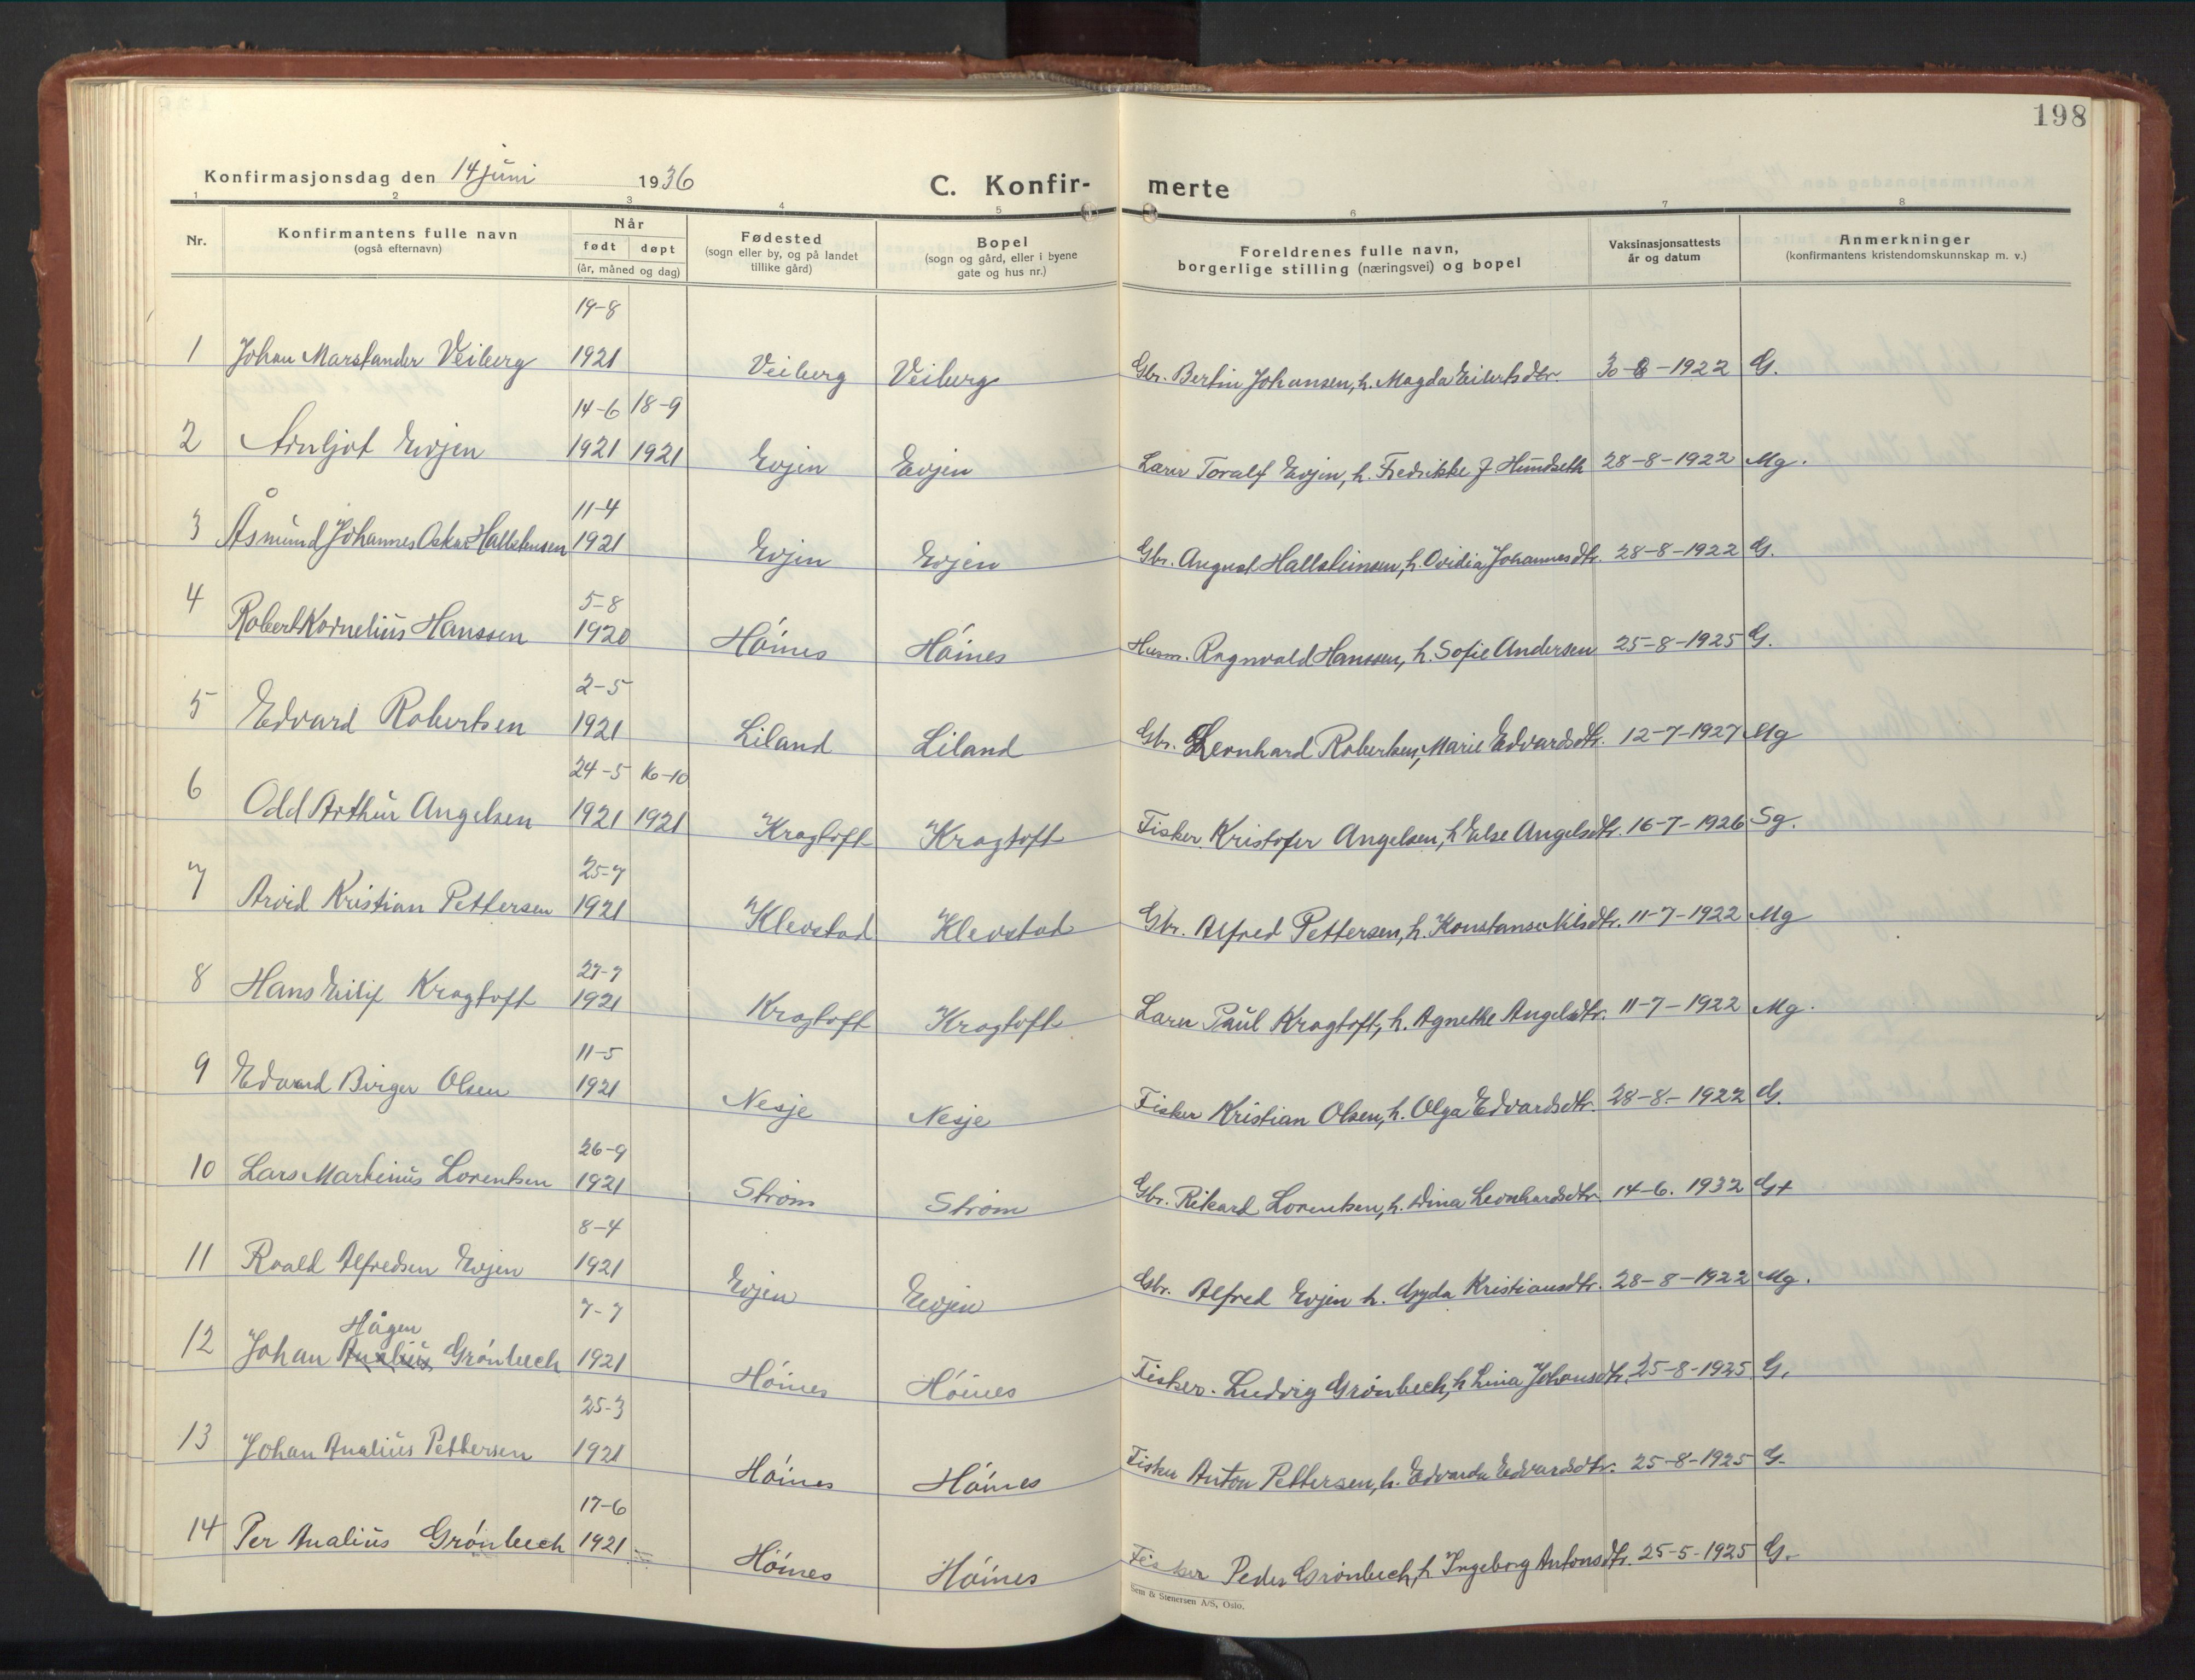 198
Konfirmasjonsdag den 14 juni 1936
C. Konfir- merte
1 2 3 4 5 6 7 8
Nr.
Konfirmantens fulle navn
(også efternavn)
Når
født døpt
(år, måned og dag)
Fødested
(sogn eller by, og på landet
tillike gård)
Bopel
(sogn og gård, eller i byene
gate og hus nr.)
Foreldrenes fulle navn,
borgerlige stilling (næringsvei) og bopel
Vaksinasjonsattests
år og datum
Anmerkninger
(konfirmantens kristendomskunnskap m. v.)
19-8
1 Johan Marslander Veiberg 1921 Veiberg Veiberg Gbr. Bertin Johansen, h. Magda Eilertsdtr. 30-8-1922 G.
14-6 18-9
2 Arnljot Evjen 1921 1921 Evjen Evjen Lærer Toralf Evjen, h. Fredrikke J. Hundseth 28-8-1922 Mg.
11-4
3 Åsmund Johannes Oskar Hallsteinsen 1921 Evjen Evjen Gbr. August Hallsteinsen, h. Ovidia Johannesdtr. 28-8-1922 G.
5-8
4 Robert Kornelius Hanssen 1920 Höines Höines Husm. Ragnvald Hanssen, h. Sofie Andersen 25-8-1925 G.
2-5
5 Edvard Robertsen 1921 Liland Liland Gbr. Leonhard Robertsen, Marie Edvardsdtr. 12-7-1927 Mg
24-5 16-10
6 Odd Arthur Angelsen 1921 1921 Kragtoft Kragtoft Fisker Kristofer Angelsen, h Else Angelsdtr. 16-7-1926 Sg.
25-7
7 Arvid Kristian Pettersen 1921 Klevstad Klevstad Gbr. Alfred Pettersen, h. Konstanse Nilsdtr. 11-7-1922 Mg
27-7
8 Hans Eilif Kragtoft 1921 Kragtoft Kragtoft Lærer Paul Kragtoft, h. Agnethe Angelsdtr. 11-7-1922 Mg.
11-5
9 Edvard Birger Olsen 1921 Nesje Nesje Fisker Kristian Olsen, h. Olga Edvardsdtr. 28-8-1922 G.
26-9
10 Lars Martinius Lorentsen 1921 Strøm Strøm Gbr. Rikard Lorentsen, h. Dina Leonhardsdtr. 14-6. 1932 G+
8-4
11 Roald Alfredsen Evjen 1921 Evjen Evjen Gbr. Alfred Evjen h. Gyda Kristiansdtr. 28-8-1922 Mg.
7-7
Hågen
12 Johan Analius Grönbech 1921 Höines Höines Fisker. Ludvig Grönbech, h Lina Johansdtr. 25-8-1925 G.
25-3
13 Johan Analius Pettersen 1921 Höines Höines Fisker Anton Pettersen, h. Edvarda Edvardsdtr. 25-8-1925 G-
17-6
14 Per Analius Grönbech 1921 Höines Höines Fisker Peder Grönbech, h Ingeborg Antonsdtr. 25-5-1925 G-
Sem & Stenersen A/S, Oslo.